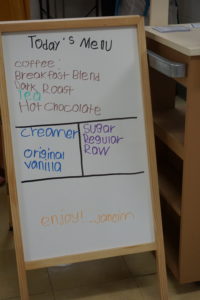 Today's Menu
coffee:
Breakfast Blend
Dark Roast
Tea
Hot Chocolate
creamer
original
vanilla
Sugar
Regular
Raw
enjoy!